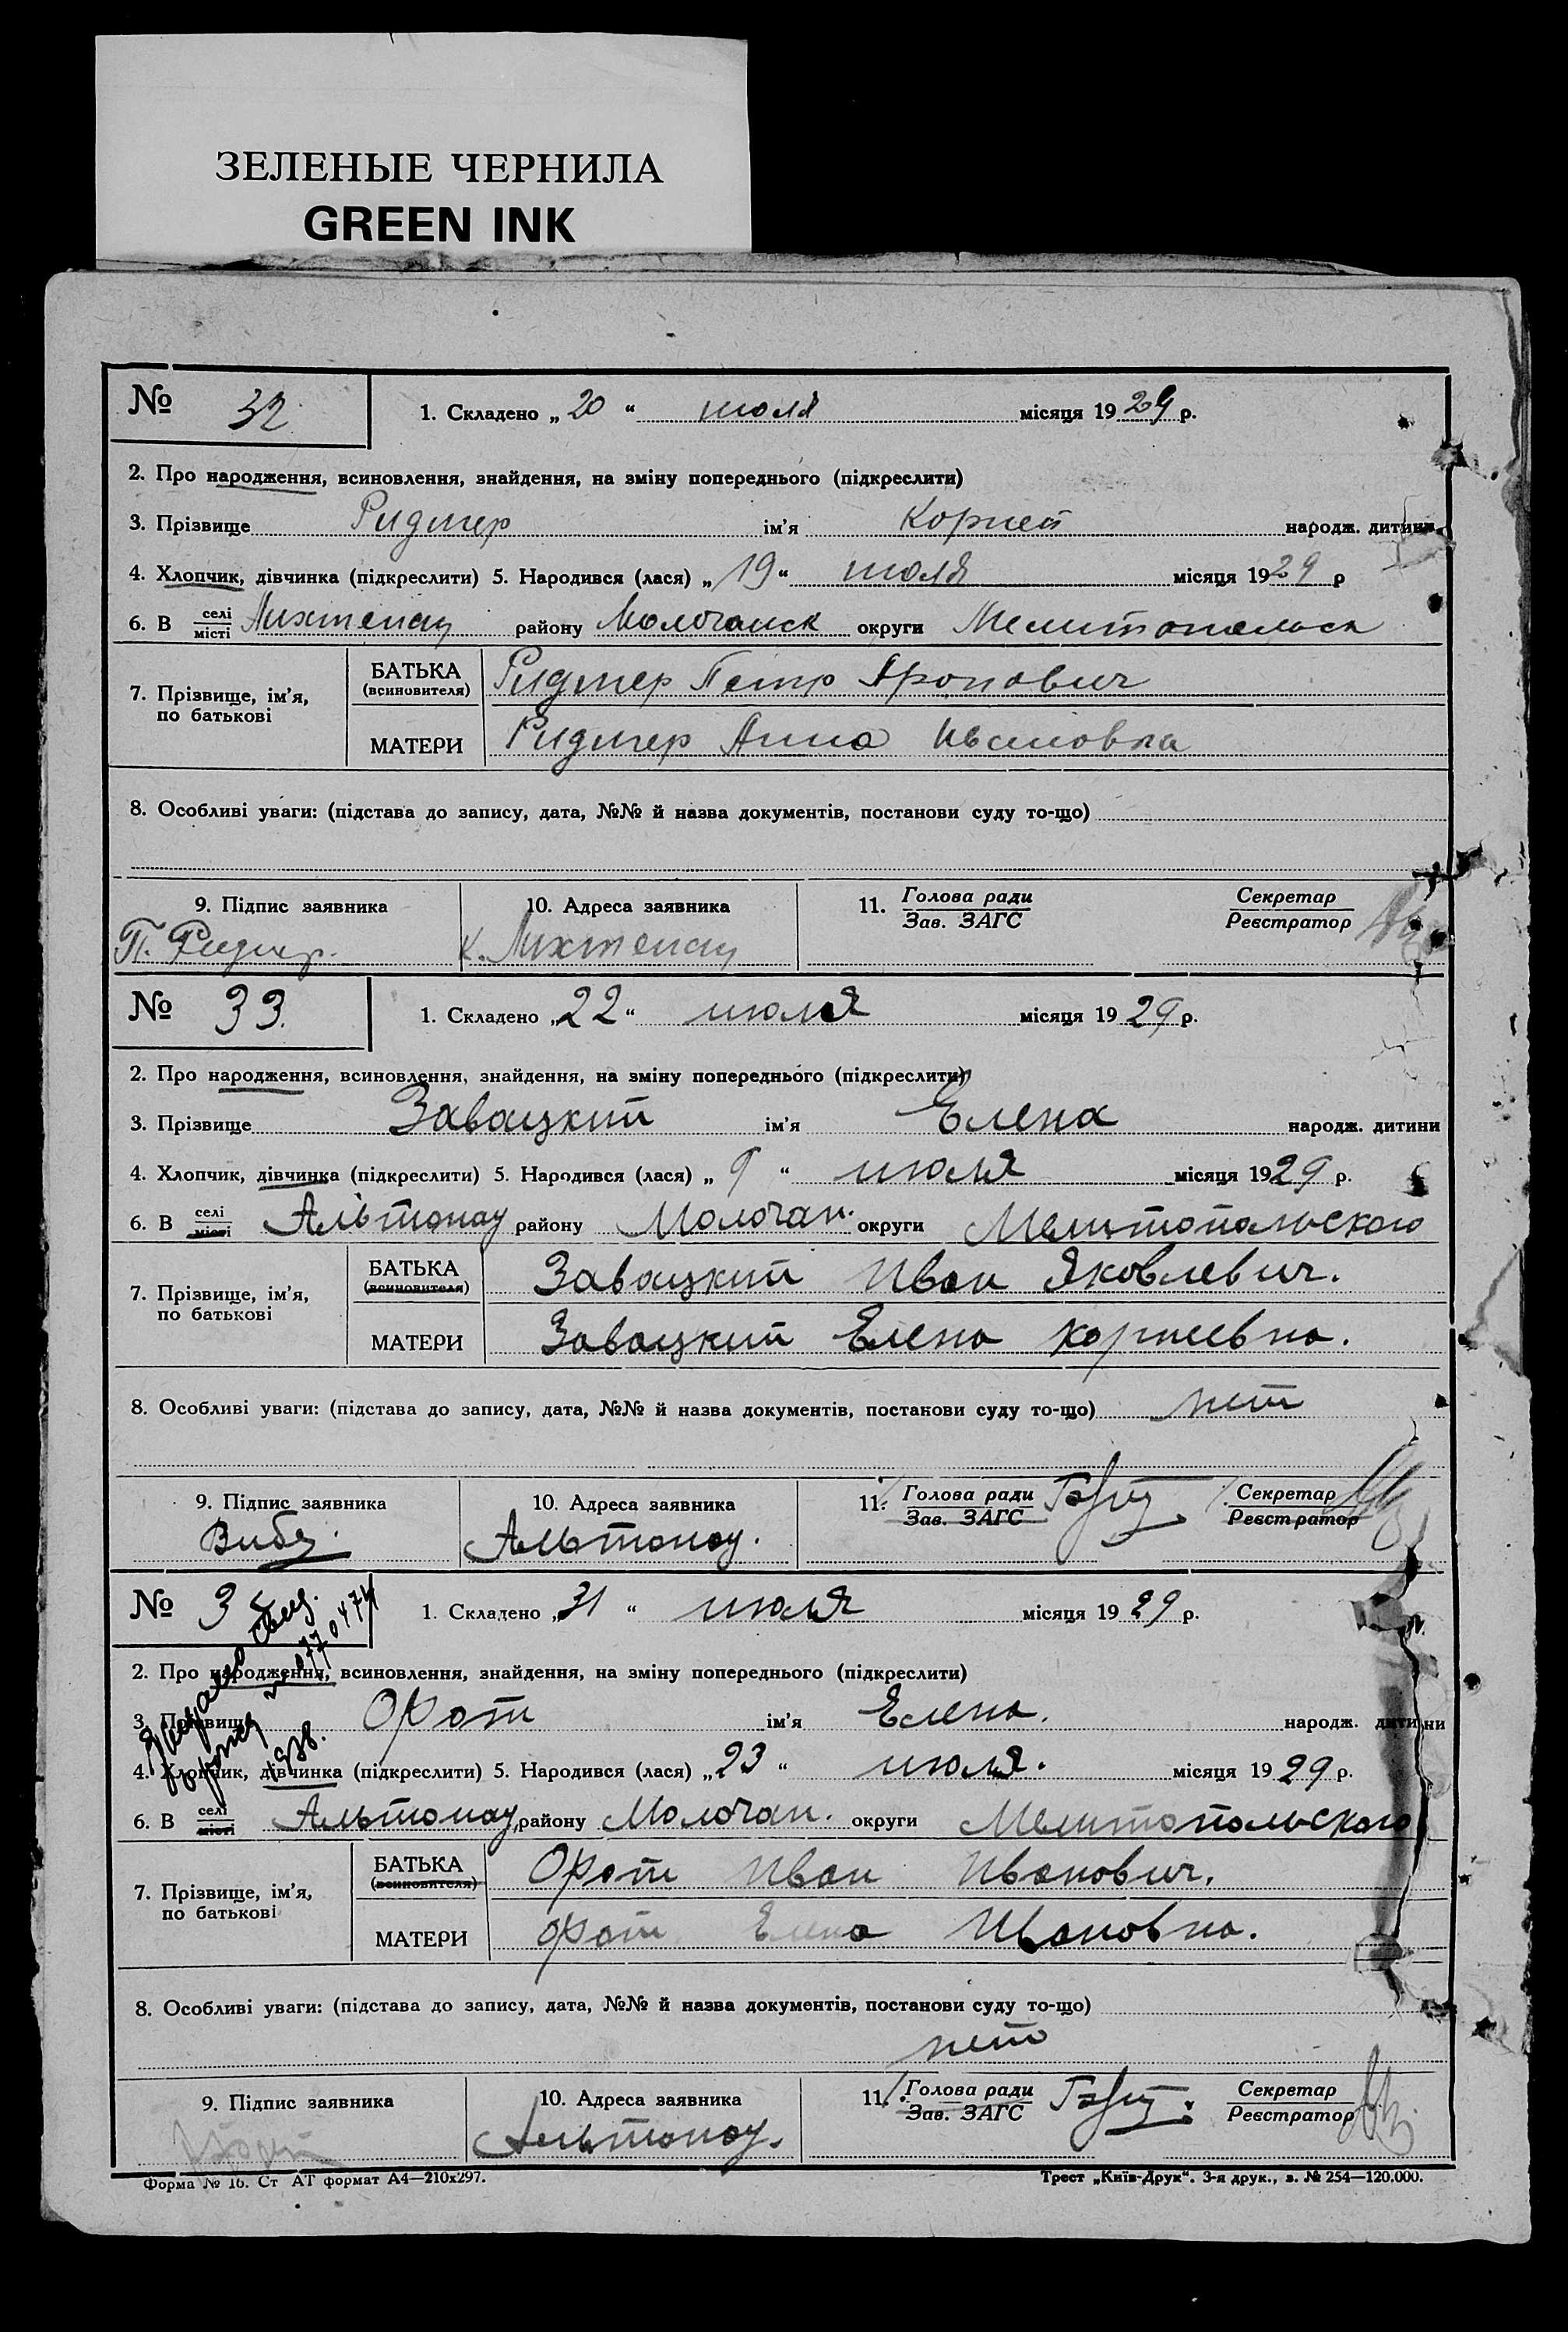 ЗЕЛЕНЫЕ ЧЕРНИЛА
GREEN INK
№ 32. 1. Складено „20“ июля місяця 1929 р.
2. Про народження, всиновлення, знайдення, на зміну попереднього (підкреслити)
3. Прізвище Ридигер ім'я Корней народж. дитини
4. Хлопчик, дівчинка (підкреслити) 5. Народився (лася) „19“ июля місяця 1929 р
6. В селі місті Лихтенау району Молочанск округи Мелитопольск
7. Прізвище, ім'я, по батькові
БАТЬКА (всиновителя) Ридигер Петр Аронович
МАТЕРИ Ридигер Анна Ивановна
8. Особливі уваги: (підстава до запису, дата, №№ й назва документів, постанови суду то-що)
9. Підпис заявника 10. Адреса заявника 11. Голова ради Зав. ЗАГС Секретар Реєстратор
П. Ридигер. к. Лихтенау
№ 33. 1. Складено „22“ июля місяця 1929 р.
2. Про народження, всиновлення, знайдення, на зміну попереднього (підкреслити)
3. Прізвище Завацкий ім'я Елена народж. дитини
4. Хлопчик, дівчинка (підкреслити) 5. Народився (лася) „9“ июля місяця 1929 р.
6. В селі місті Альтонау району Молочан. округи Мелитопольского
7. Прізвище, ім'я, по батькові
БАТЬКА (всиновителя) Завацкий Иван Яковлевич.
МАТЕРИ Завацкий Елена Корнеевна.
8. Особливі уваги: (підстава до запису, дата, №№ й назва документів, постанови суду то-що) нет
9. Підпис заявника 10. Адреса заявника 11. Голова ради Зав. ЗАГС Секретар Реєстратор
Вибе. Альтонау.
№ 1. Складено „31“ июля місяця 1929 р.
2. Про народження, всиновлення, знайдення, на зміну попереднього (підкреслити)
3. Прізвище Фот ім'я Елена. народж. дитини
4. Хлопчик, дівчинка (підкреслити) 5. Народився (лася) „23“ июля. місяця 1929 р.
6. В селі місті Альтонау, району Молочан. округи Мелитопольского
7. Прізвище, ім'я, по батькові
БАТЬКА (всиновителя) Фот Иван Иванович.
МАТЕРИ Фот Елена Ивановна.
8. Особливі уваги: (підстава до запису, дата, №№ й назва документів, постанови суду то-що)
нет
9. Підпис заявника 10. Адреса заявника 11. Голова ради Зав. ЗАГС Секретар Реєстратор
Альтонау.
Форма № 1б. Ст АТ формат А4—210х297. Трест „Київ-Друк“. 3-я друк., з. № 254—120.000.